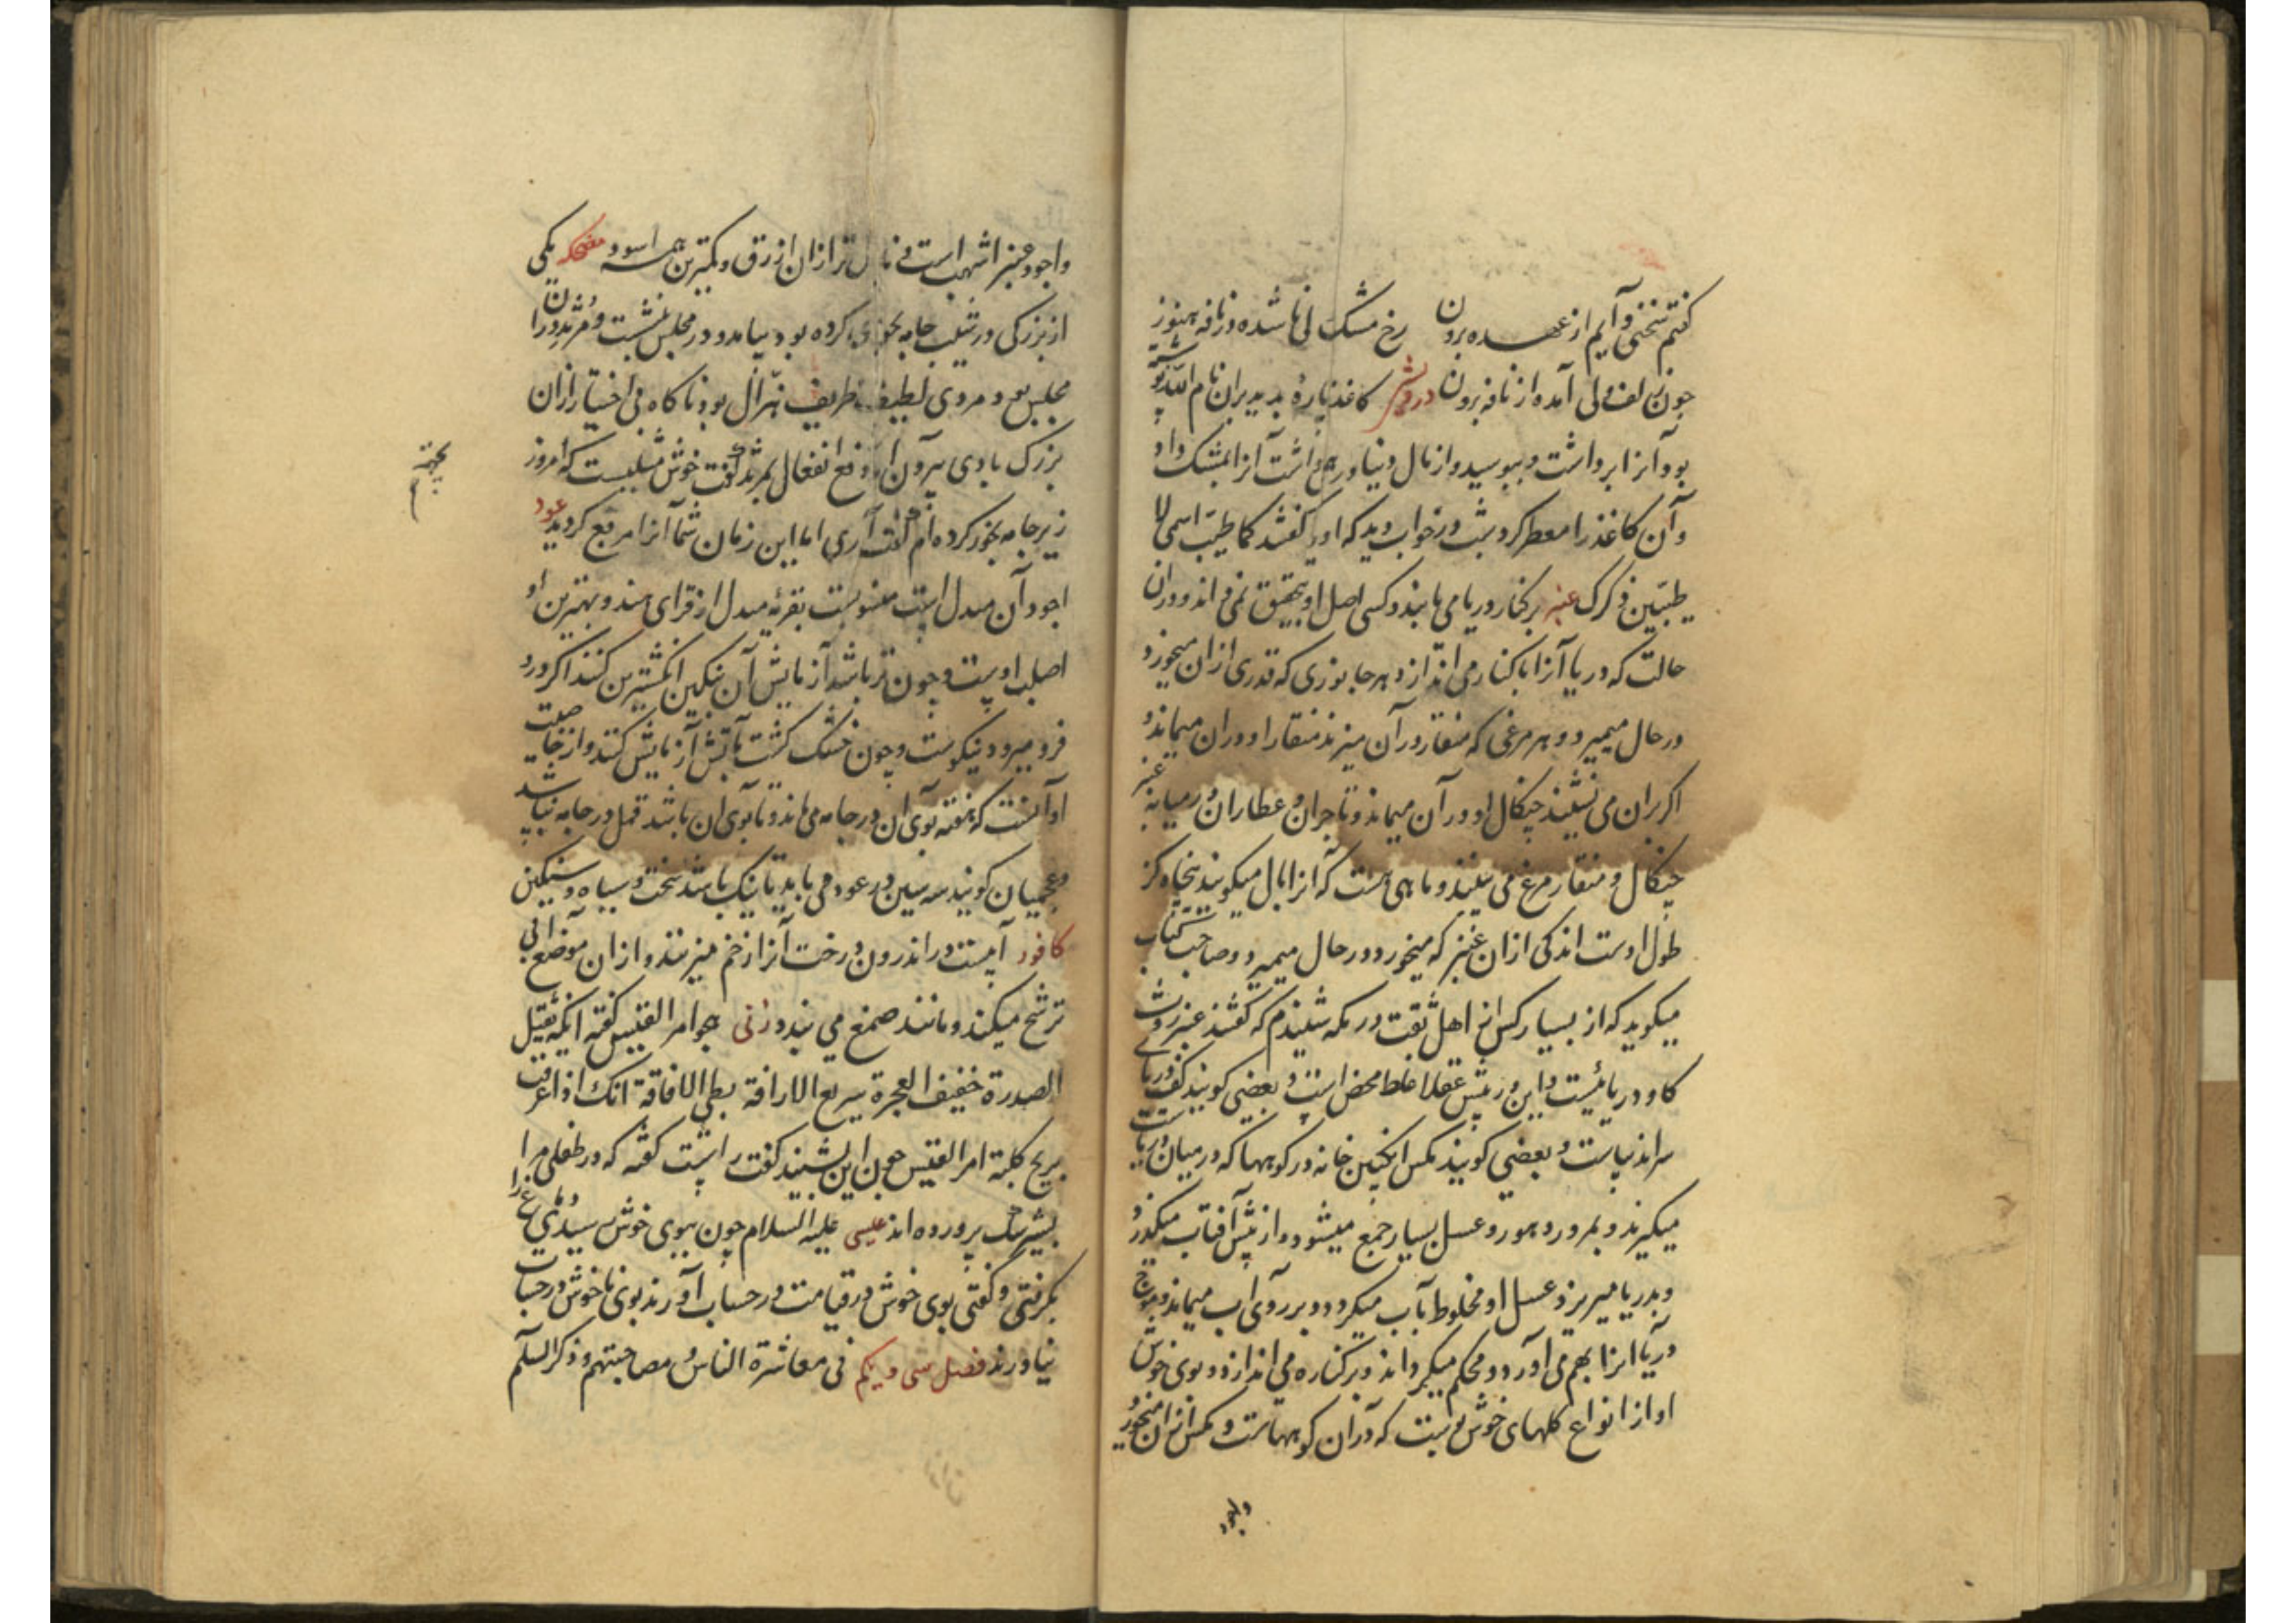 گفتم سخنی و آیم از عهده برون رخ مشک لی ناشده در نافه هنوز
چون زلف ولی آمده از نافه برون درویش کاغذ پاره بدید بران نام الله نوشته
بود آنرا برداشت و ببوسید و از مال دنیا درهمی داشت آنرا بمشک داد
و آن کاغذ را معطر کرد شب در خواب دید که او را گفتند کما طیبت اسمی لا
طیبین ذکرک عنبر بر کنار دریا می یابند و کسی اصل او بتحقیق نمیداند و دران
حالت که دریا آنرا با کنار می اندازد هر جانوری که قدری ازان میخورد
در حال میمیرد و هر مرغی که منقار در آن میزند منقار او دران میماند و
اگر بران می نشیند چنکال او در آن میماند و تاجران و عطاران در میانه عنبر
چنکال و منقار مرغ می بینند و ماهی هست که آنرا بال میکویند پنجاه کز
طول اوست اندکی ازان عنبر که میخورد در حال میمیرد و صاحب کتاب
میکوید که از بسیار کس از اهل ثقت در مکه شنیدم که گفتند عنبر روث
کاو دریائیست و این در پیش عقلا غلط محض است و بعضی کویند کف دریای
سراندیباست و بعضی کویند مکس انکبین خانه در کوهها که در میان دریاست
میکیرند و بمرور دهور و عسل بسیار جمع میشود و از تپش آفتاب میکدازد
و بدریا میریزد عسل او مخلوط بآب میکردد و بر روی آب میماند و تموج
دریا انرا بهم می آورد و محکم میکرداند و بر کناره می اندازد و بوی خوش
او از انواع کلهای خوش بوست که دران کوههاست و مکس ازان میخورد
واجود
واجود عنبر اشهب است فی نازل تر ازان ازرق و کمترین همه اسود مضحکه یکی
از بزرکی در شب جامه بخوری کرده بود بیامد و در مجلس بنشست و مرثد دران
مجلس بود مردی لطیف ظریف هزال بود ناکاه بی اختیار ازان
بزرک بادی بیرون آمد و دفع انفعال بمرثد گفت خوش مثلثیست که امروز
زیر جامه بخور کرده ام گفت آری اما این زمان شما آنرا مربع کردید عود
اجود آن مندل است منسوبست بقریه مندل از قرای هند و بهترین او
اصلب اوست و چون تر باشد آزمایش آن بنکین انکشترین کنند اکر درو
فرو میرود نیکوست و چون خشک کشت بآتش آزمایش کنند و از خاصیت
او آنست که هفته بوی ان در جامه می ماند و تا بوی ان باشد قمل در جامه نباشد
و عجمیان کویند سه سین در عود می باید تا نیک باشد سخت و سیاه و سنکین
کافور آبیست در اندرون درخت آنرا زخم میزنند و ازان موضع آبی
ترشح میکند و مانند صمغ می بندد زنی هجو امر القیس کفته انک ثقیل
الصدرة خفیف العجزة سریع الاراقة بطی الافاقة انک اذا عرقت
بریح کلبة امر القیس چون این بشنید کفت راست کفته که در طفلی مرا
بشیر سک پرورده اند عیسی علیه السلام چون ببوی خوش رسیدی دماغ را
بکرفتی و کفتی بوی خوش در قیامت در حساب آورند بوی ناخوش در حساب
نیاورند فصل سی و یکم فی معاشرة الناس و مصاحبتهم و ذکر السلم